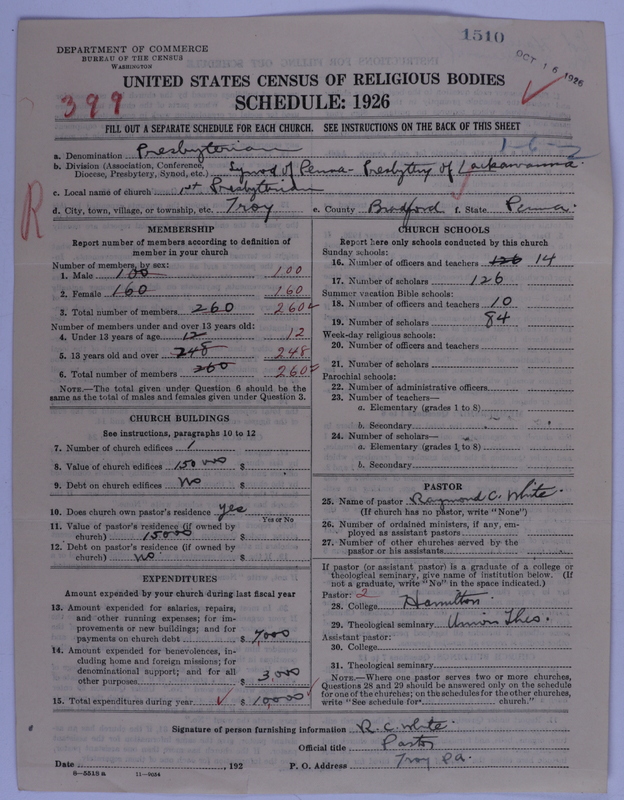 1510
DEPARTMENT OF COMMERCE
BUREAU OF THE CENSUS
WASHINGTON
OCT 16 1926
UNITED STATES CENSUS OF RELIGIOUS BODIES
399
SCHEDULE: 1926
FILL OUT A SEPARATE SCHEDULE FOR EACH CHURCH. SEE INSTRUCTIONS ON THE BACK OF THIS SHEET
1-6-2
a. Denomination Presbyterian
b. Division (Association, Conference, Diocese, Presbytery, Synod, etc.) Synod of Penna- Presbytery of Lackawanna.
c. Local name of church 1st Presbyterian
R
d. City, town, village, or township, etc. Troy e. County Bradford f. State Penna.
MEMBERSHIP
Report number of members according to definition of member in your church
Number of members, by sex:
1. Male 100 100
2. Female 160 160
3. Total number of members 260 260
Number of members under and over 13 years old:
4. Under 13 years of age 12 12
5. 13 years old and over 248 248
6. Total number of members 260 260
NOTE.—The total given under Question 6 should be the same as the total of males and females given under Question 3.
CHURCH BUILDINGS
See instructions, paragraphs 10 to 12
7. Number of church edifices 1
8. Value of church edifices 150 000 $
9. Debt on church edifices No $
10. Does church own pastor's residence yes
Yes or No
11. Value of pastor's residence (if owned by church) 15000 $
12. Debt on pastor's residence (if owned by church) No $
EXPENDITURES
Amount expended by your church during last fiscal year
13. Amount expended for salaries, repairs, and other running expenses; for improvements or new buildings; and for payments on church debt $ 7,000
14. Amount expended for benevolences, including home and foreign missions; for denominational support; and for all other purposes $ 3,000
15. Total expenditures during year $ 10,000
CHURCH SCHOOLS
Report here only schools conducted by this church
Sunday schools:
16. Number of officers and teachers 126 14
17. Number of scholars 126
Summer vacation Bible schools:
18. Number of officers and teachers 10
19. Number of scholars 84
Week-day religious schools:
20. Number of officers and teachers
21. Number of scholars
Parochial schools:
22. Number of administrative officers
23. Number of teachers—
a. Elementary (grades 1 to 8)
b. Secondary
24. Number of scholars—
a. Elementary (grades 1 to 8)
b. Secondary
PASTOR
25. Name of pastor Raymond C. White.
(If church has no pastor, write "None")
26. Number of ordained ministers, if any, employed as assistant pastors
27. Number of other churches served by the pastor or his assistants
If pastor (or assistant pastor) is a graduate of a college or theological seminary, give name of institution below. (If not a graduate, write "No" in the space indicated.)
Pastor: 2
28. College Hamilton.
29. Theological seminary Union Theo.
Assistant pastor:
30. College
31. Theological seminary
NOTE.—Where one pastor serves two or more churches, Questions 28 and 29 should be answered only on the schedule for one of the churches; on the schedules for the other churches, write "See schedule for church."
Signature of person furnishing information R. C. White.
Official title Pastor
Date , 192 P. O. Address Troy Pa.
8—5513 a 11—9054